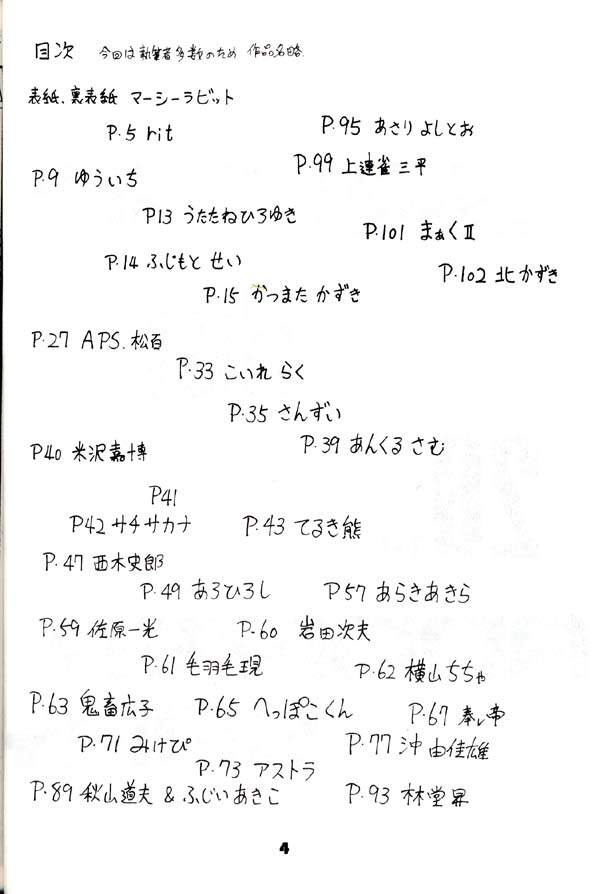 目次 今回は執筆者多数のため 作品名略.
表紙、裏表紙 マーシーラビット
P.5 rit
P.95 あさり よしとお
P.99 上連雀 三平
P.9 ゆういち
P13 うたたねひろゆき
P.101 まぁくⅡ
P.14 ふじもと せい
P.102 北 かずき
P.15 がつまた かずき
P.27 APS.松百
P.33 こいれ らく
P.35 さんずい
P.39 あんくる さむ
P40 米沢嘉博
P41
P42 サチサカナ
P.43 てるき熊
P.47 西木史郎
P.49 あろひろし
P57 あらきあきら
P.59 佐原一光
P.60 岩田次夫
P.61 毛羽毛現
P.62 横山ちちゃ
P.63 鬼畜広子
P.65 へっぽこくん
P.67 奉 帝
P.71 みけぴ
P.77 沖 由佳雄
P.73 アストラ
P.89 秋山道夫 & ふじいあきこ
P.93 林堂昇
4